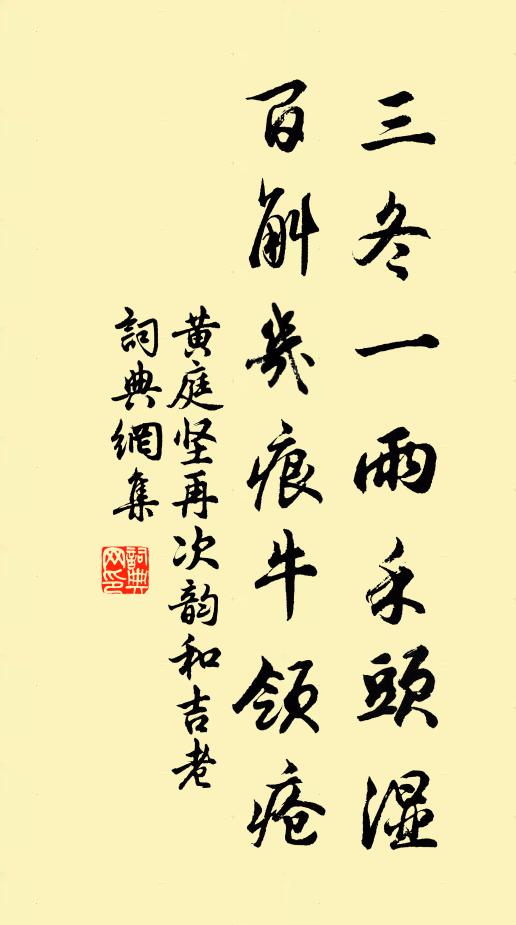 三冬一雨禾頭湿
百斛幾痕牛領瘡
黄庭坚再次韵和吉老
詞典網集
詞典网印